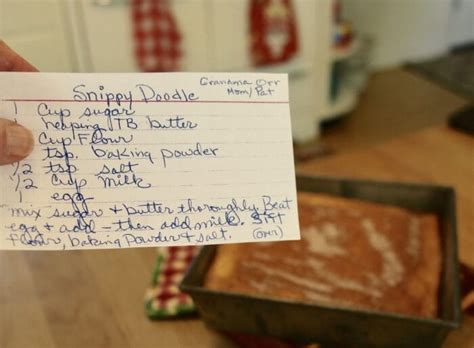 Snippy Doodle
Grandma Orr
Mom/Pat
1 Cup sugar
1 heaping TB butter
Cup Flour
tsp. baking powder
1/2 tsp salt
1/2 cup milk
1 egg
mix sugar + butter thoroughly. Beat
egg + add - then add milk. Sift
flour, baking powder + salt. (over)